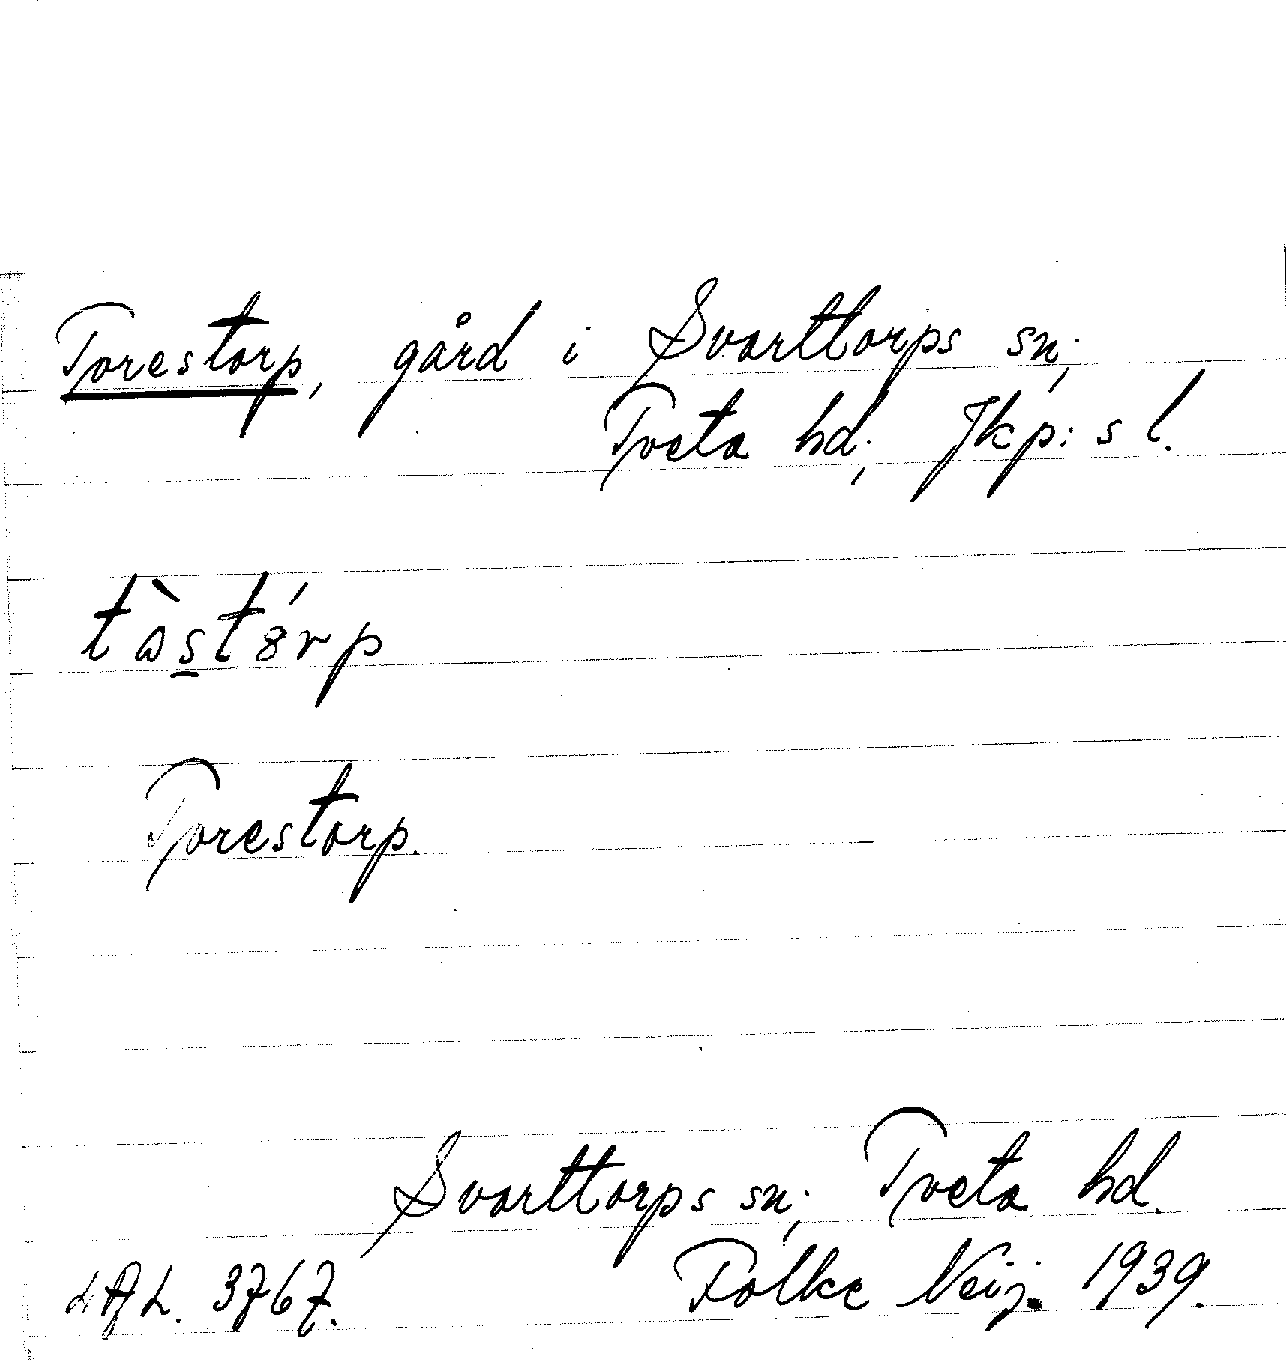 Torestorp, gård i Svarttorps sn;
Tveta hd; Jkp: s l.
tὼstȣ́rp
Torestorp.
Svarttorps sn; Tveta hd.
LAL. 3767. Folke Neij. 1939.